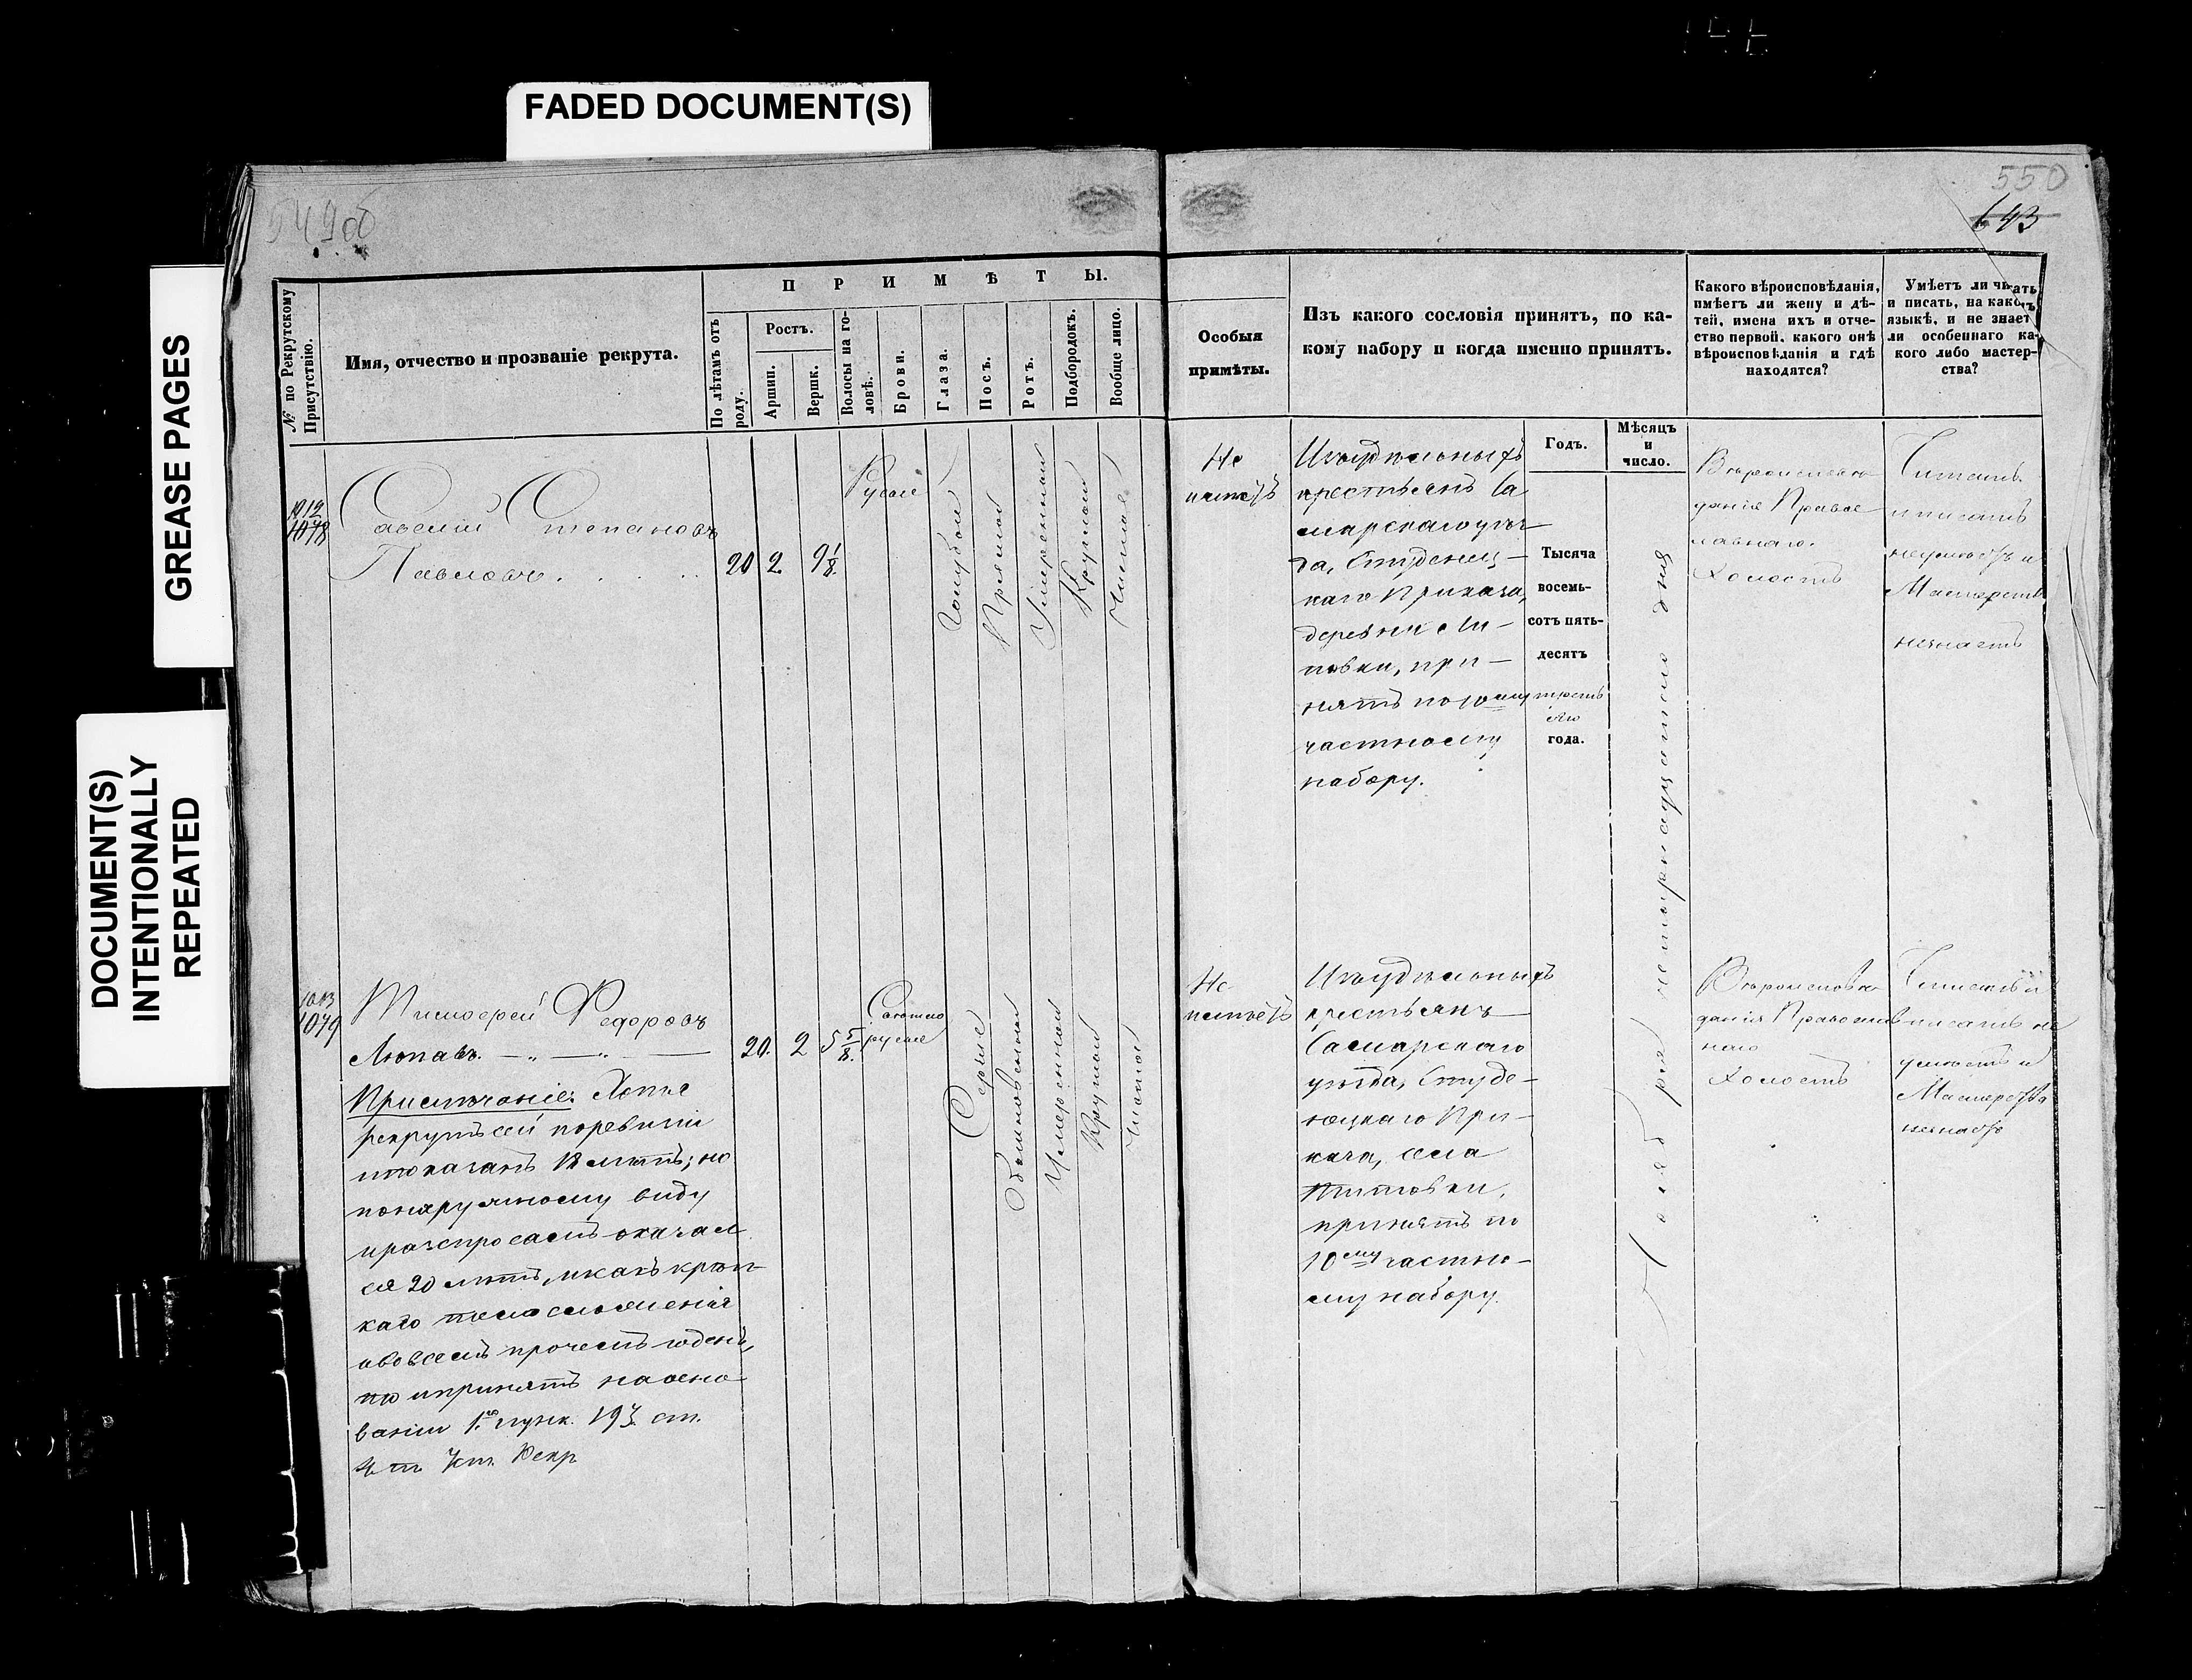 FADED DOCUMENT(S)
GREASE PAGES
DOCUMENT(S)
INTENTIONALLY
REPEATED
549об
550
643
№ по Рекрутскому Присутствію.
Имя, отчество и прозваніе рекрута.
ПРИМѢТЫ.
По лѣтамъ отъ роду.
Ростъ.
Аршин.
Вершк.
Волосы на головѣ.
Брови.
Глаза.
Носъ.
Ротъ.
Подбородокъ.
Вообще лицо.
Особыя
примѣты.
Изъ какого сословія принятъ, по ка-
кому набору и когда именно принятъ.
Какого вѣроисповѣданія,
имѣетъ ли жену и дѣ-
тей, имена ихъ и отче-
ство первой, какого онѣ
вѣроисповѣданія и гдѣ
находятся?
Умѣетъ ли читать
и писать, на какомъ
языкѣ, и не знаетъ
ли особеннаго ка-
кого либо мастер-
ства?
Годъ.
Мѣсяцъ
и
число.
1012
1078
Савелій Степановъ
Павловъ
20 2 9 1/8
Русые
Голубые
Прямой
Умеренный
Круглый
Чистое
Не
имѣетъ
Изъ удѣльныхъ
крестьянъ Са
марскаго уѣз
да, Студенец-
каго Приказа,
деревни Ли-
повки, при-
нятъ по 10му
частному
набору.
Тысяча
восемь-
сотъ пять-
десятъ
третьяго
года.
Ноября четырнадцатаго дня
Вѣроисповѣ
данія Правос
лавнаго.
Холостъ
Читать
и писать
неумѣетъ и
Мастерства
незнаетъ
1013
1079
Тимофей Федоровъ
Люпавъ
20. 2 5 5/8
Светло
русые
Серые
Обыкновенный
Умеренный
Круглый
Чистое
Примѣчаніе: Хотя
рекрутъ сей поревизіи
и показанъ 18 лѣтъ; но
понаружному виду
и разспросамъ оказал
ся 20 лѣтъ, и какъ крѣп
каго тѣлосложенія
и вовсемъ прочемъ годенъ,
то и принятъ на осно
ваніи 1го пунк. 193 ст.
4 т Уст. Рекр
Не
имѣетъ
Изъ удѣльныхъ
крестьянъ
Самарскаго
уѣзда, Студе-
нецкаго При-
каза, села
Титовки,
принятъ по
10му частно-
му набору.
Вѣроисповѣ
данія Православ
наго
Холостъ
Читать и
писать не
умѣетъ и
Мастерства
незнаетъ